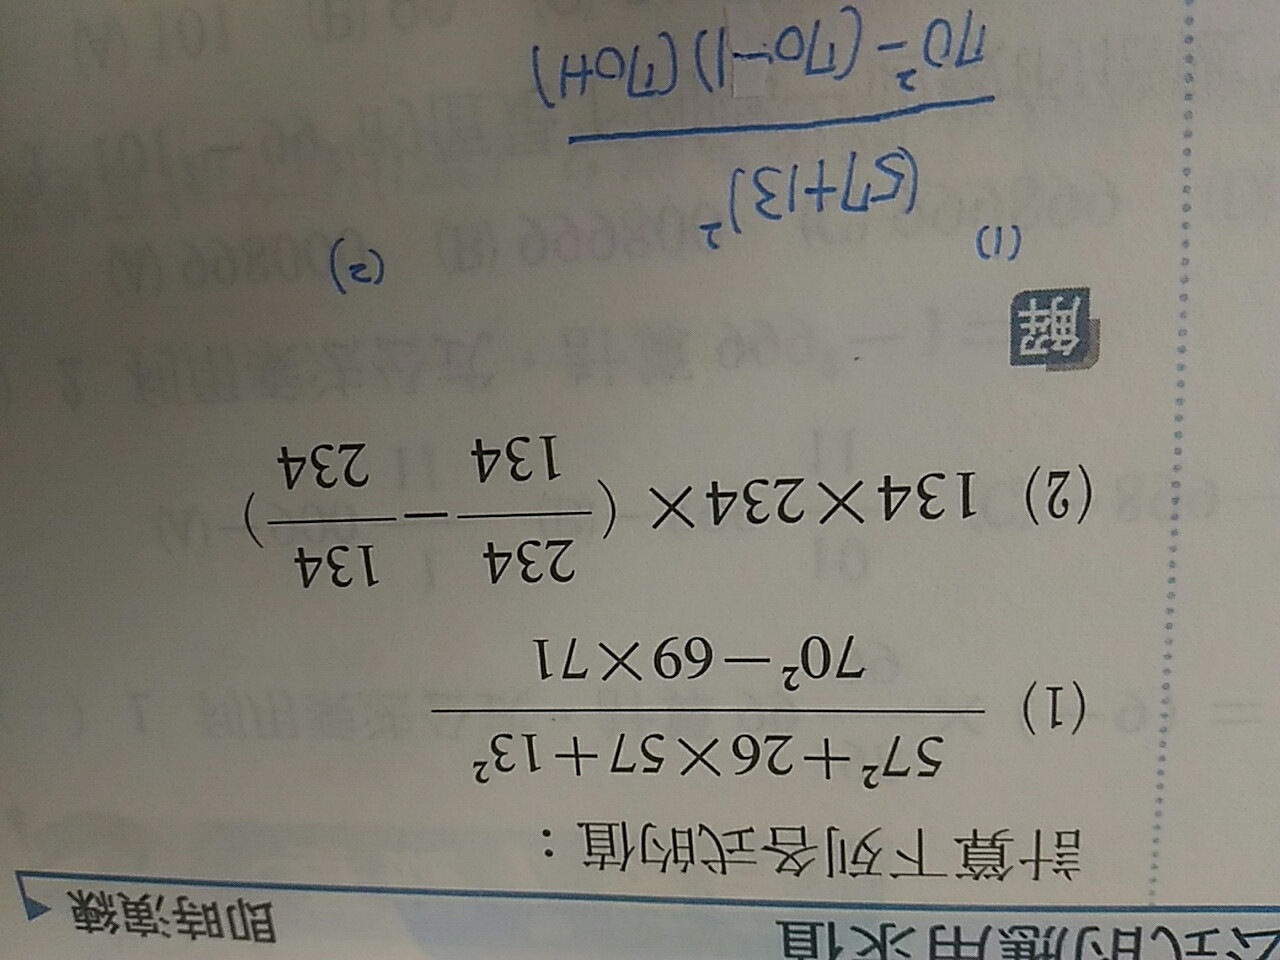 公式的應用求值
即時演練
計算下列各式的值：
(1) 57²＋26×57＋13²
70²－69×71
(2) 134×234×(234/134－134/234)
解
(1) (57+13)²
70²-(70-1)(70+1)
(2)